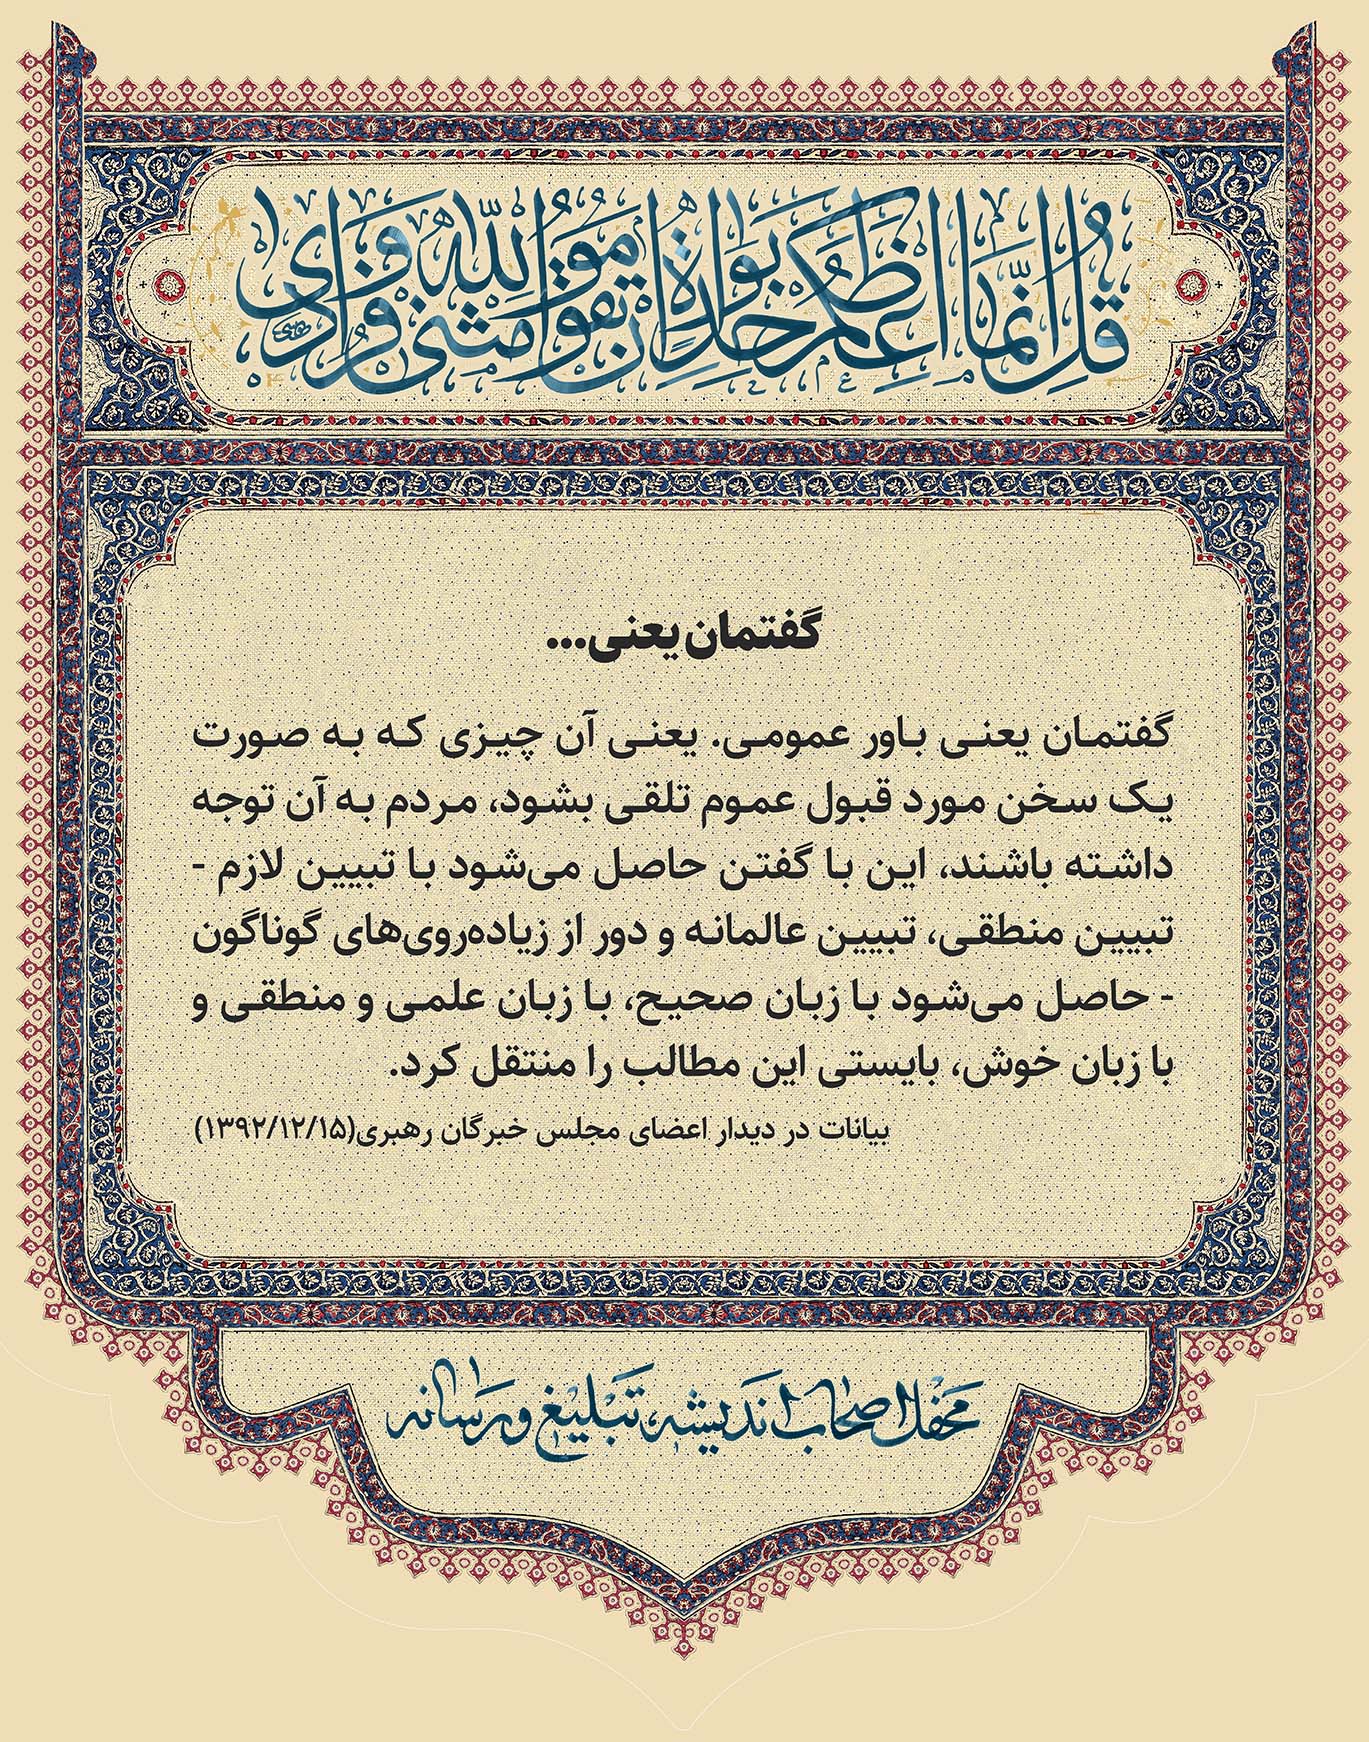 قُل اِنَّما اَعِظُکُم بِواحِدَةٍ اَن تَقوموا لِلّٰهِ مَثنیٰ وَ فُرادیٰ
گفتمان یعنی...
گفتمان یعنی باور عمومی. یعنی آن چیزی که به صورت
یک سخن مورد قبول عموم تلقی بشود، مردم به آن توجه
داشته باشند، این با گفتن حاصل می‌شود با تبیین لازم -
تبیین منطقی، تبیین عالمانه و دور از زیاده‌روی‌های گوناگون
- حاصل می‌شود با زبان صحیح، با زبان علمی و منطقی و
با زبان خوش، بایستی این مطالب را منتقل کرد.
بیانات در دیدار اعضای مجلس خبرگان رهبری(۱۳۹۲/۱۲/۱۵)
محفل اصحاب اندیشه، تبلیغ و رسانه